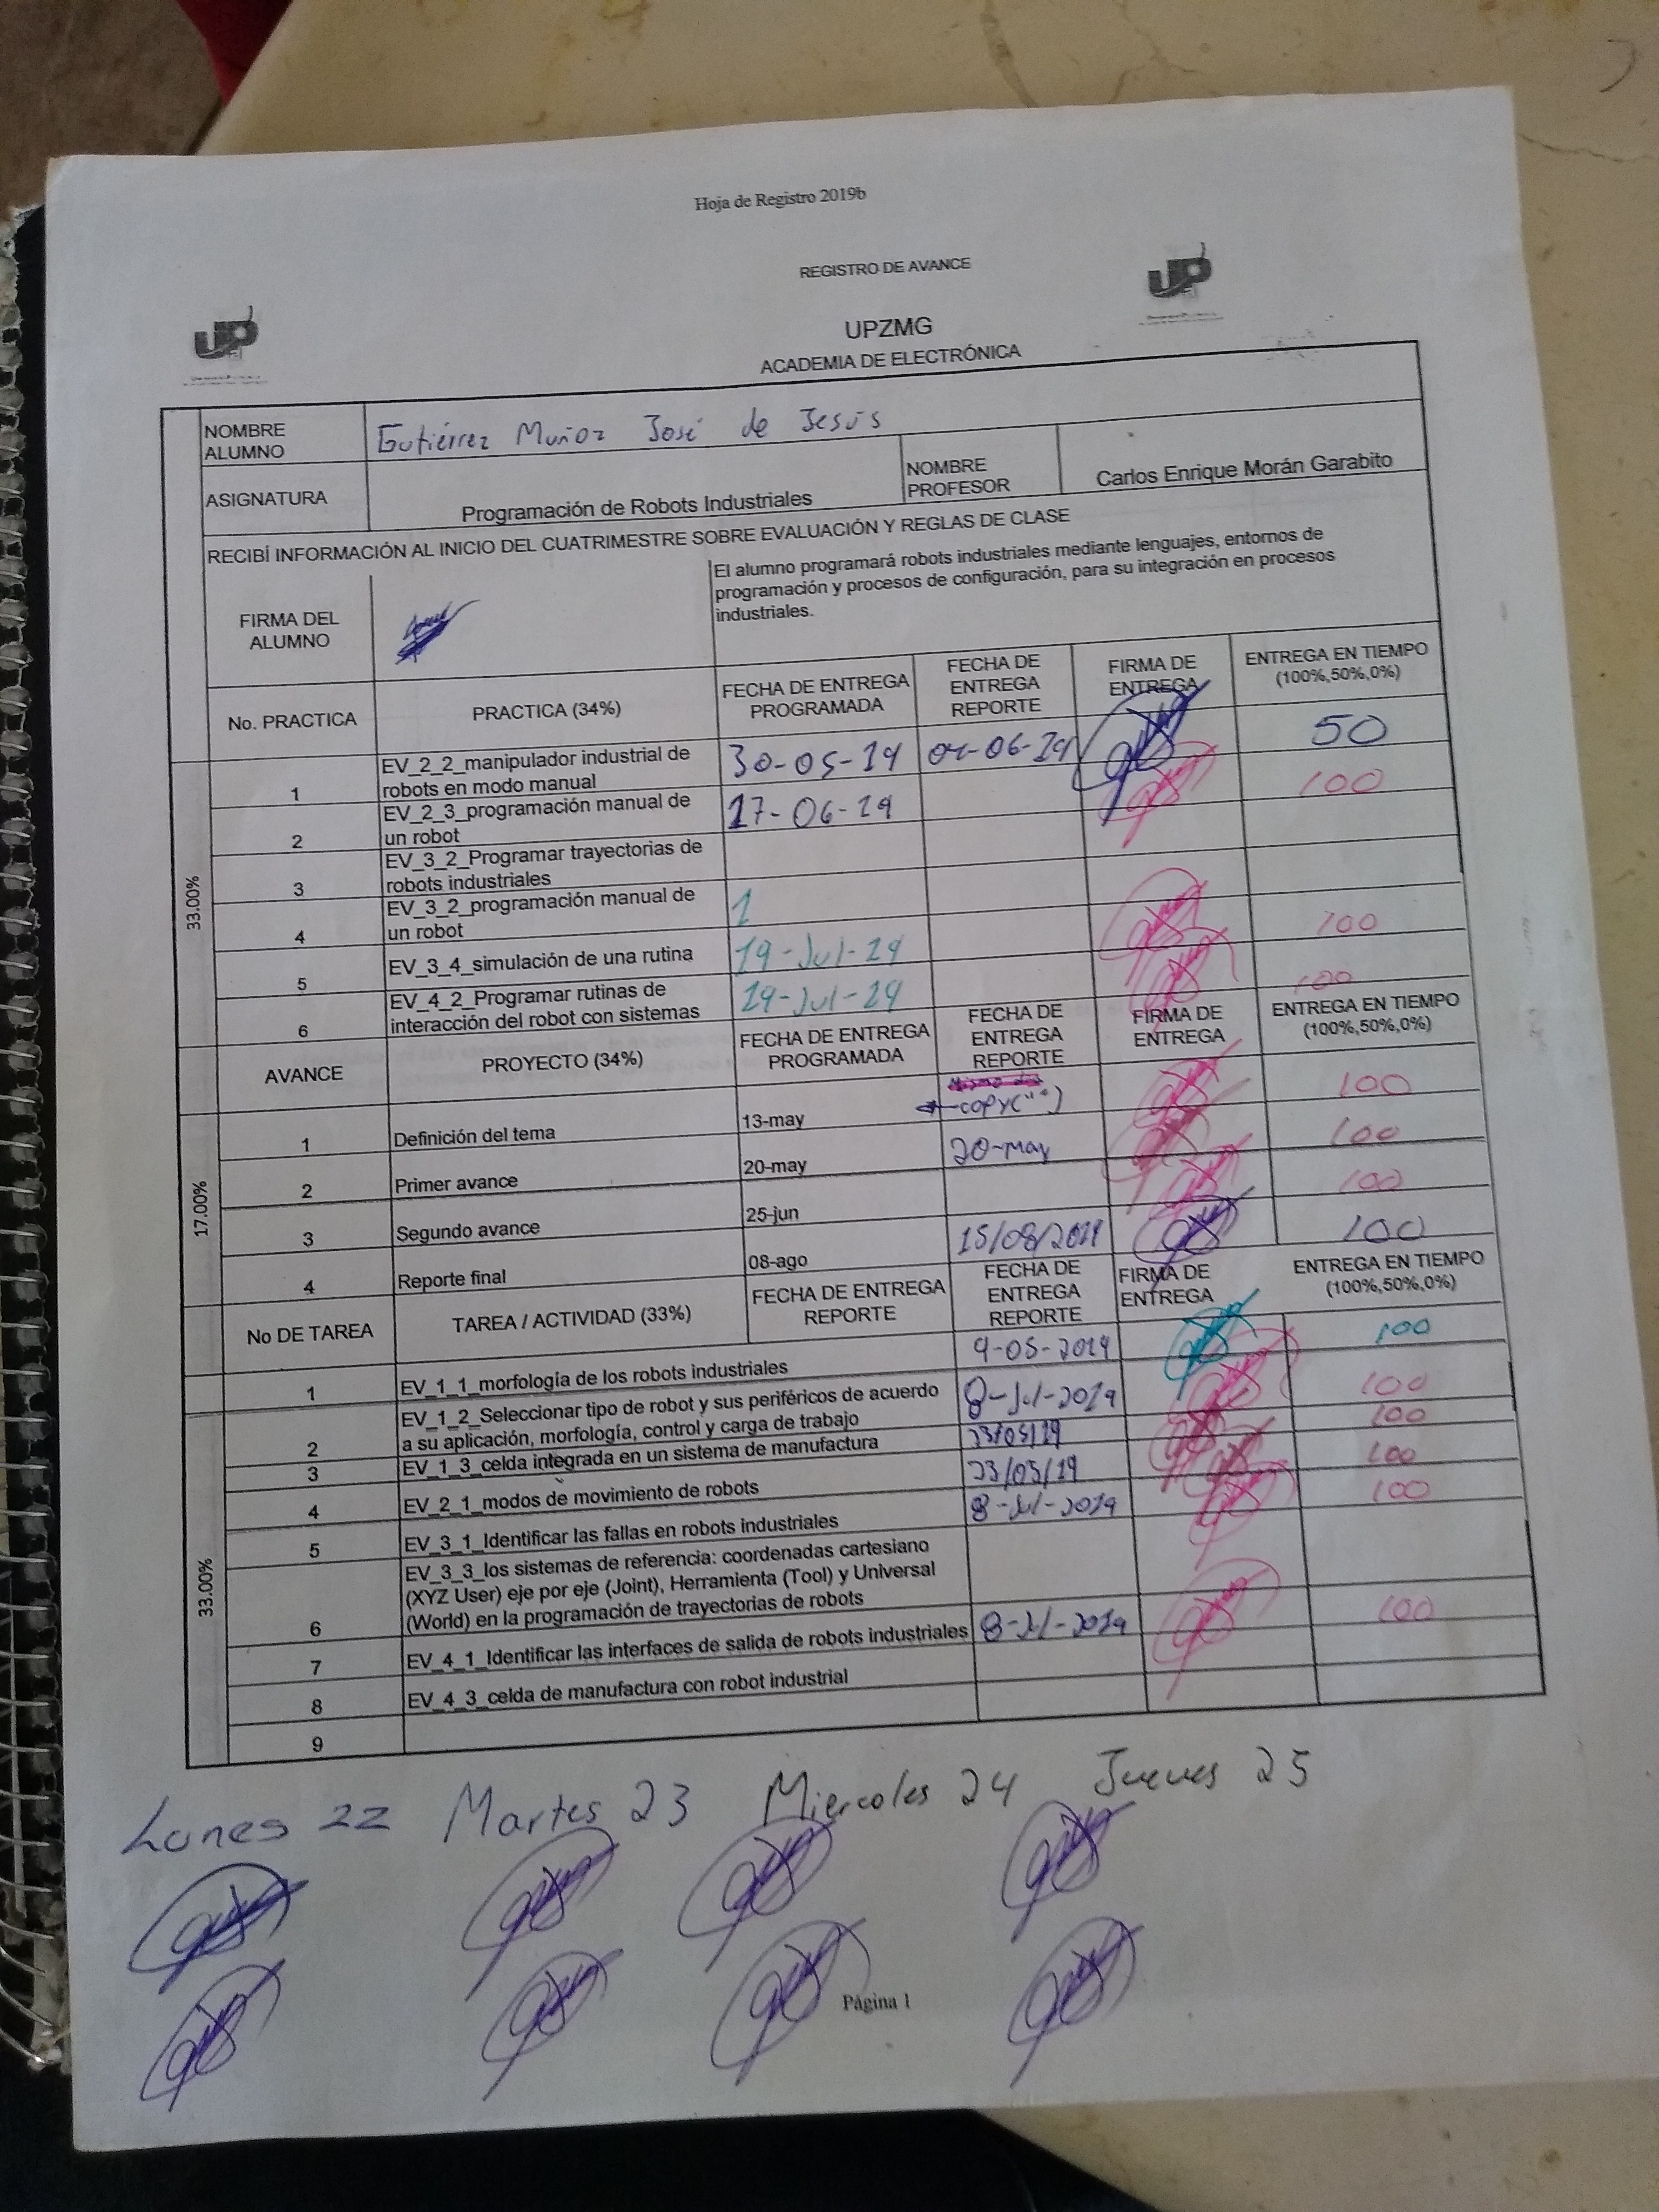 Hoja de Registro 2019b
REGISTRO DE AVANCE
UP UP
UPZMG
ACADEMIA DE ELECTRÓNICA
NOMBRE ALUMNO Gutiérrez Muñoz José de Jesús
ASIGNATURA Programación de Robots Industriales NOMBRE PROFESOR Carlos Enrique Morán Garabito
RECIBÍ INFORMACIÓN AL INICIO DEL CUATRIMESTRE SOBRE EVALUACIÓN Y REGLAS DE CLASE
FIRMA DEL ALUMNO
El alumno programará robots industriales mediante lenguajes, entornos de
programación y procesos de configuración, para su integración en procesos
industriales.
No. PRACTICA PRACTICA (34%) FECHA DE ENTREGA PROGRAMADA FECHA DE ENTREGA REPORTE FIRMA DE ENTREGA ENTREGA EN TIEMPO (100%,50%,0%)
33.00%
1 EV_2_2_manipulador industrial de robots en modo manual 30-05-19 50
2 EV_2_3_programación manual de un robot 17-06-19 100
3 EV_3_2_Programar trayectorias de robots industriales
4 EV_3_2_programación manual de un robot 1 100
5 EV_3_4_simulación de una rutina 19-Jul-19 100
6 EV_4_2_Programar rutinas de interacción del robot con sistemas 19-Jul-19
AVANCE PROYECTO (34%) FECHA DE ENTREGA PROGRAMADA FECHA DE ENTREGA REPORTE FIRMA DE ENTREGA ENTREGA EN TIEMPO (100%,50%,0%)
17.00%
1 Definición del tema 13-may copy("") 100
2 Primer avance 20-may 20-may 100
3 Segundo avance 25-jun 100
4 Reporte final 08-ago 15/08/2019 100
No DE TAREA TAREA / ACTIVIDAD (33%) FECHA DE ENTREGA REPORTE FECHA DE ENTREGA REPORTE FIRMA DE ENTREGA ENTREGA EN TIEMPO (100%,50%,0%)
33.00%
1 EV_1_1_morfología de los robots industriales 9-05-2019 100
2 EV_1_2_Seleccionar tipo de robot y sus periféricos de acuerdo a su aplicación, morfología, control y carga de trabajo 8-Jul-2019 100
3 EV_1_3_celda integrada en un sistema de manufactura 23/05/19 100
4 EV_2_1_modos de movimiento de robots 23/05/19 100
5 EV_3_1_Identificar las fallas en robots industriales 8-Jul-2019 100
6 EV_3_3_los sistemas de referencia: coordenadas cartesiano (XYZ User) eje por eje (Joint), Herramienta (Tool) y Universal (World) en la programación de trayectorias de robots
7 EV_4_1_Identificar las interfaces de salida de robots industriales 8-Jul-2019 100
8 EV_4_3_celda de manufactura con robot industrial
9
Lunes 22 Martes 23 Miercoles 24 Jueves 25
Página 1